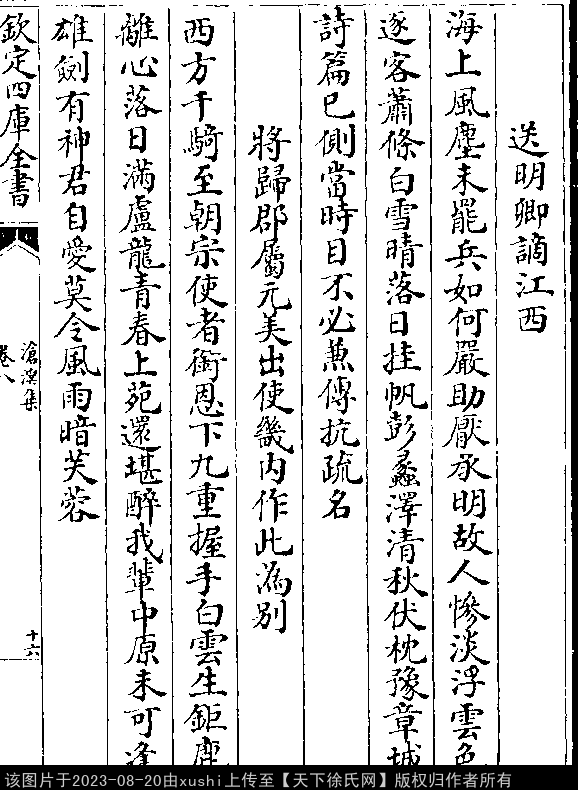 送明卿謫江西
海上風塵未罷兵如何嚴助厭承明故人慘淡浮雲色
逐客蕭條白雪晴落日挂帆彭蠡澤清秋伏枕豫章城
詩篇已側當時目不必兼傳抗疏名
將歸郡屬元美出使畿内作此為别
西方千騎至朝宗使者銜恩下九重握手白雲生鉅鹿
離心落日滿盧龍青春上苑還堪醉我輩中原未可逢
雄劒有神君自愛莫令風雨暗芙蓉
欽定四庫全書
滄溟集
卷八
十六
该图片于2023-08-20由xushi上传至【天下徐氏网】版权归作者所有